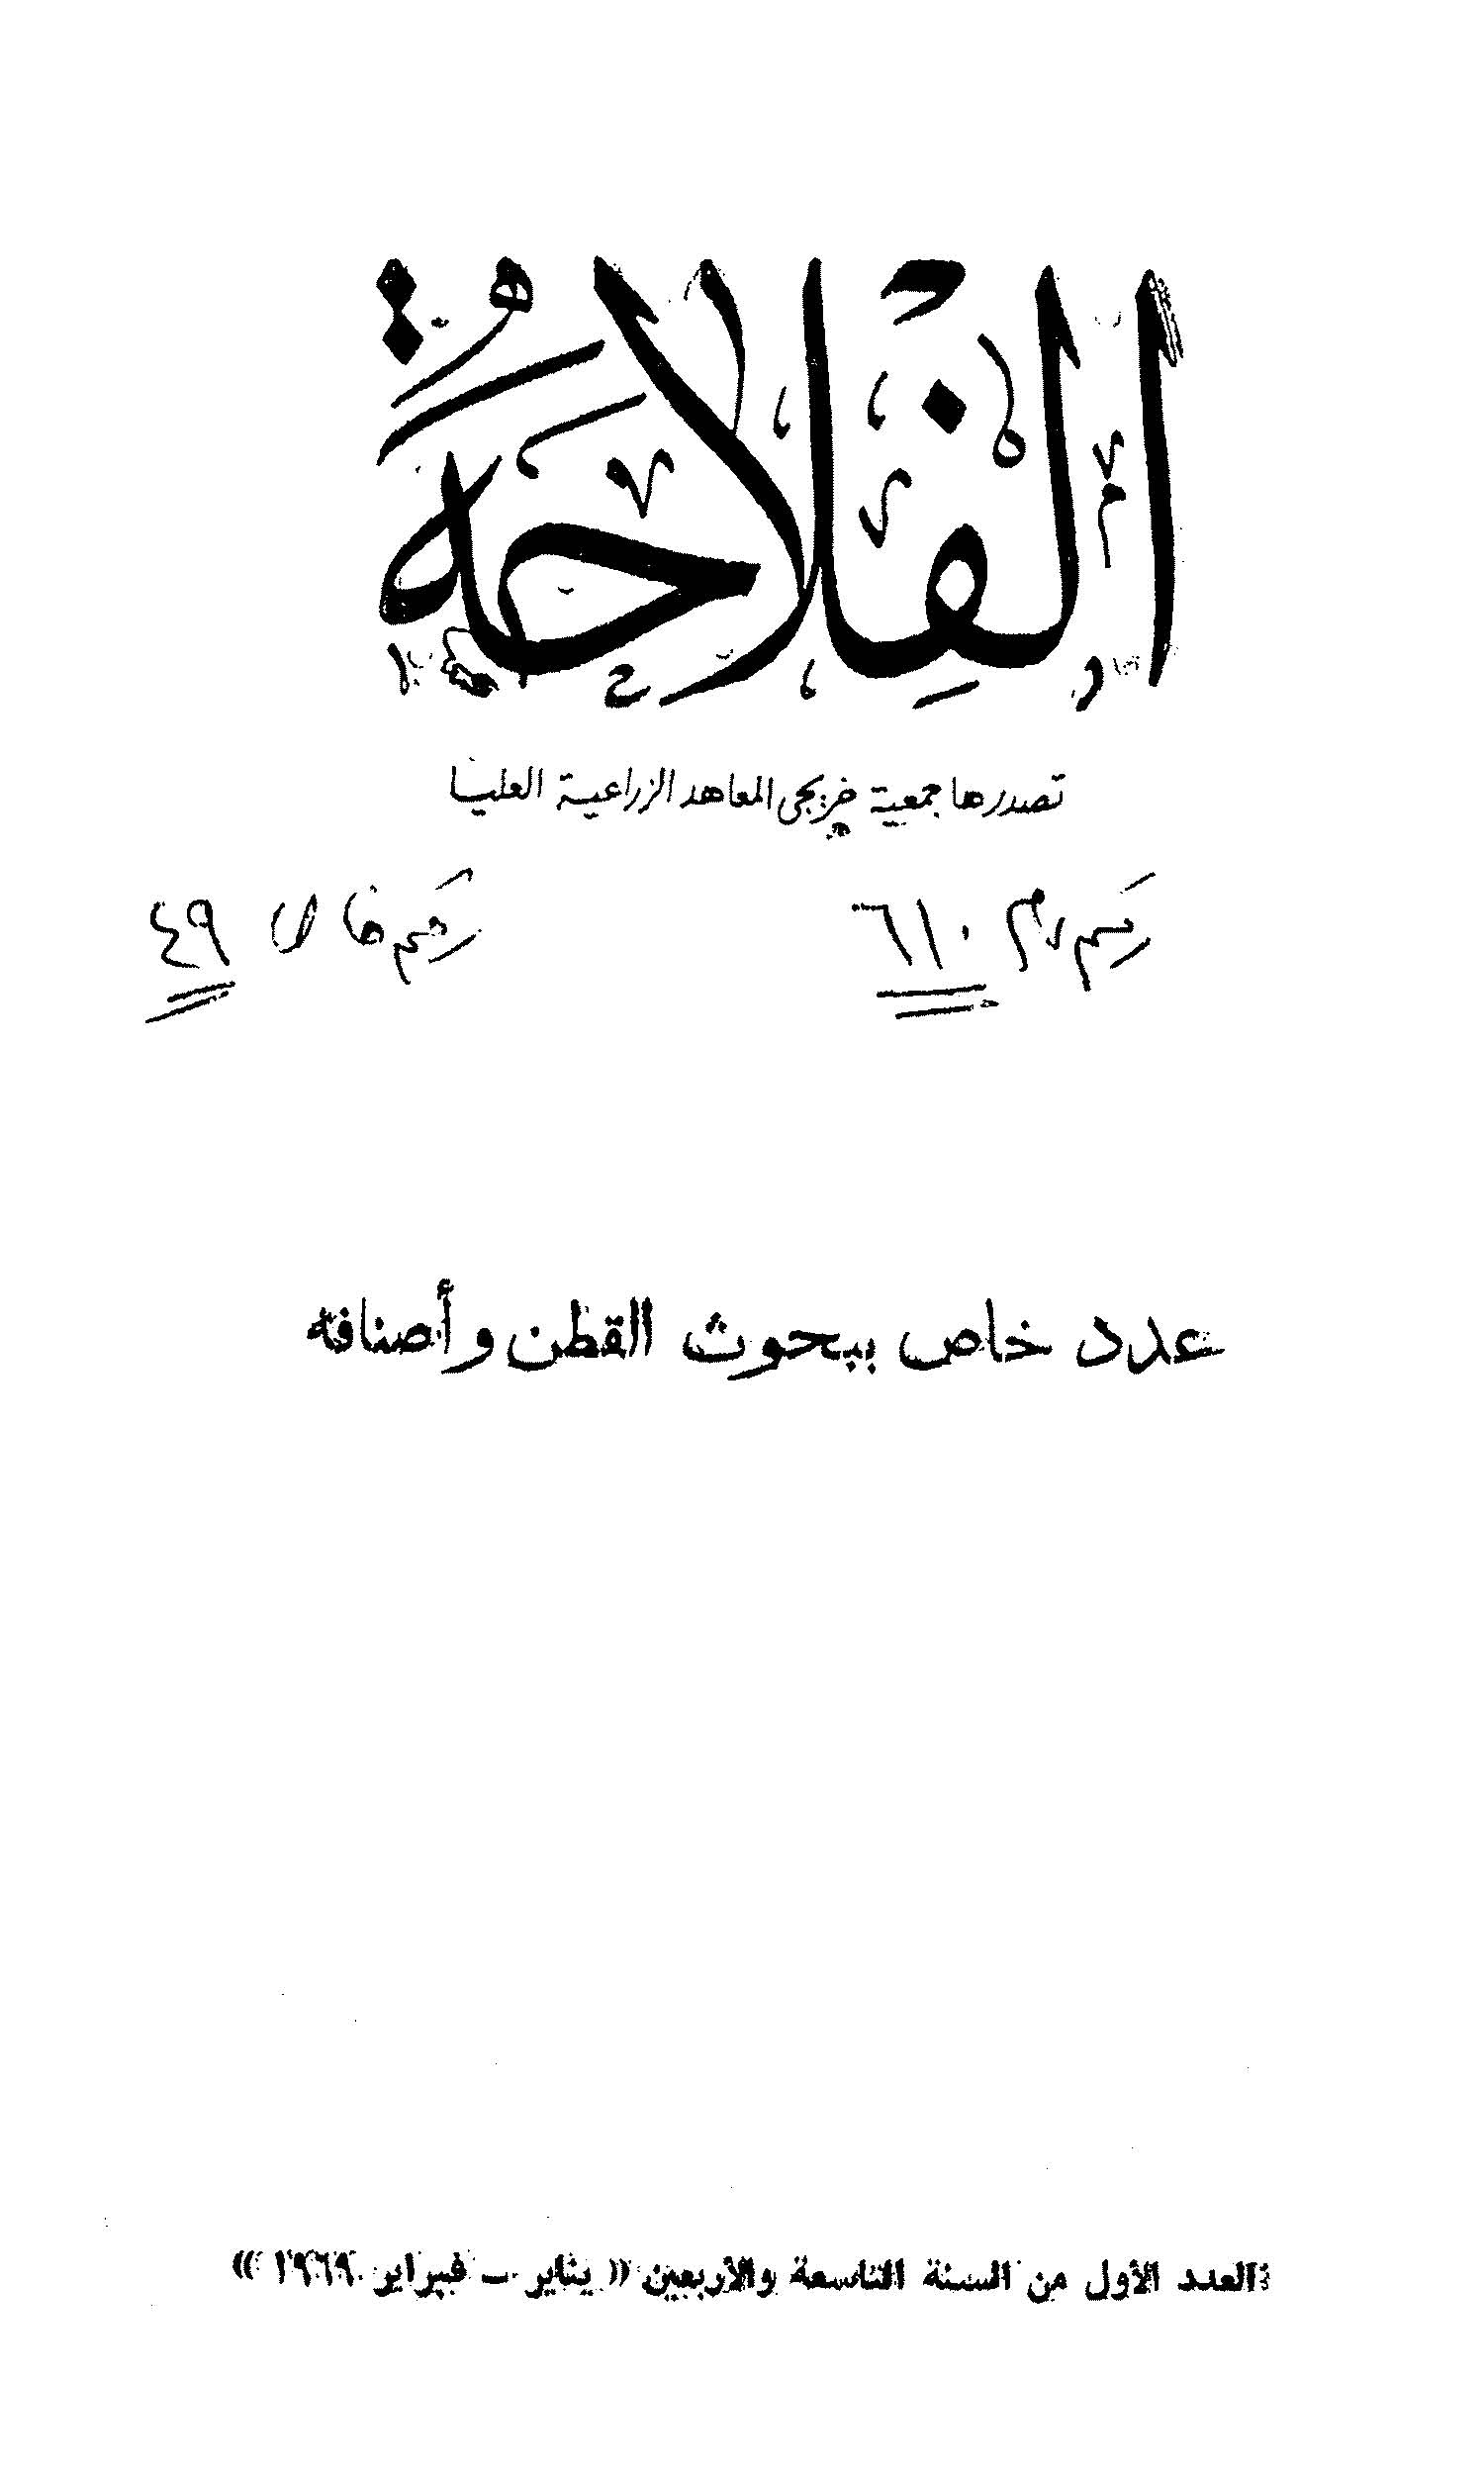 الفلاحة
تصدرها جمعية خريجى المعاهد الزراعية العليا
رقم عام ٦١٠ رقم خاص ٤٩
عدد خاص ببحوث القطن وأصنافه
العدد الأول من السنة التاسعة والأربعين « يناير – فبراير ١٩٦٩ »